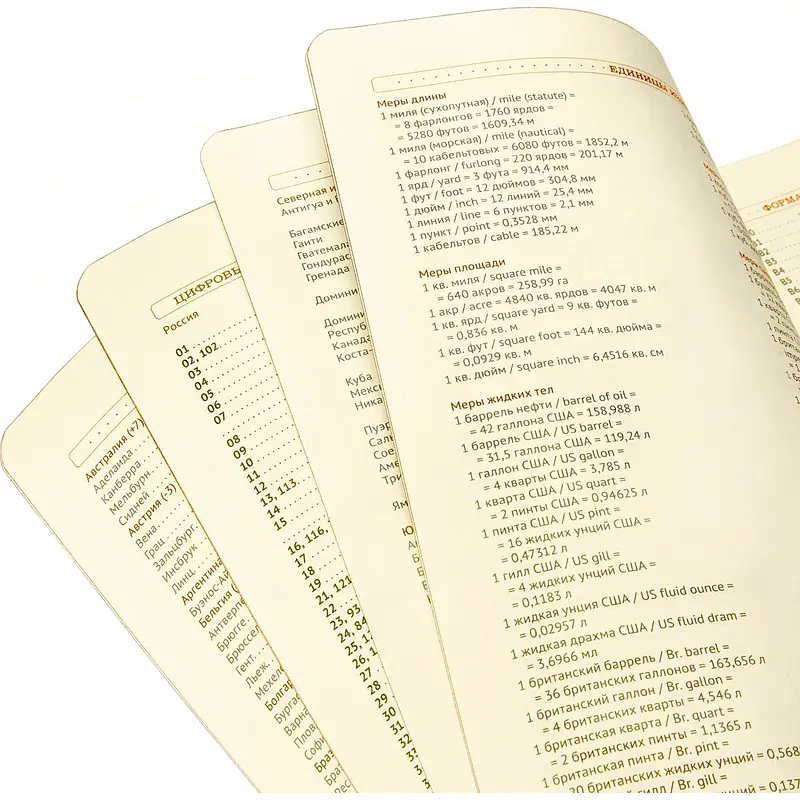 ЕДИНИЦЫ
Меры длины
1 миля (сухопутная) / mile (statute) =
= 8 фарлонгов = 1760 ярдов =
= 5280 футов = 1609,34 м
1 миля (морская) / mile (nautical) =
= 10 кабельтовых = 6080 футов = 1852,2 м
1 фарлонг / furlong = 220 ярдов = 201,17 м
1 ярд / yard = 3 фута = 914,4 мм
1 фут / foot = 12 дюймов = 304,8 мм
1 дюйм / inch = 12 линий = 25,4 мм
1 линия / line = 6 пунктов = 2,1 мм
1 пункт / point = 0,3528 мм
1 кабельтов / cable = 185,22 м
Меры площади
1 кв. миля / square mile =
= 640 акров = 258,99 га
1 акр / acre = 4840 кв. ярдов = 4047 кв. м
1 кв. ярд / square yard = 9 кв. футов =
= 0,836 кв. м
1 кв. фут / square foot = 144 кв. дюйма =
= 0,0929 кв. м
1 кв. дюйм / square inch = 6,4516 кв. см
Меры жидких тел
1 баррель нефти / barrel of oil =
= 42 галлона США = 158,988 л
1 баррель США / US barrel =
= 31,5 галлона США = 119,24 л
1 галлон США / US gallon =
= 4 кварты США = 3,785 л
1 кварта США / US quart =
= 2 пинты США = 0,94625 л
1 пинта США / US pint =
= 16 жидких унций США =
= 0,47312 л
1 гилл США / US gill =
= 4 жидких унций США =
= 0,1183 л
1 жидкая унция США / US fluid ounce =
= 0,02957 л
1 жидкая драхма США / US fluid dram =
= 3,6966 мл
1 британский баррель / Br. barrel =
= 36 британских галлонов = 163,656 л
1 британский галлон / Br. gallon =
= 4 британских кварты = 4,546 л
1 британская кварта / Br. quart =
= 2 британских пинты = 1,1365 л
1 британская пинта / Br. pint =
20 британских жидких унций = 0,568
гилл / Br. gill =
Северная и
Антигуа и
Багамские
Гаити
Гватемала
Гондурас
Гренада
Домини
Домини
Респуб
Канада
Коста-
Куба
Мекс
Ника
Пуэр
Саль
Сое
Аме
Три
Ям
ЦИФРОВЫ
Россия
01
02, 102
03
04
05
06
07
08
09
10
11
12
13, 113
14
15
16, 116,
17
18
19
21, 121
22
23, 93
24, 84
25, 1
26, 1
27
28
29
30
31
32
Австралия (+7)
Аделаида
Канберра
Мельбурн
Сидней
Австрия (-3)
Вена
Грац
Зальцбург
Инсбрук
Линц
Аргентина
Буэнос-Ай
Бельгия
Антверпе
Брюгге
Брюссел
Гент
Льеж
Мехел
Болгар
Бургас
Варна
Плов
Софи
Браз
ФОРМА
B3
B4
B5